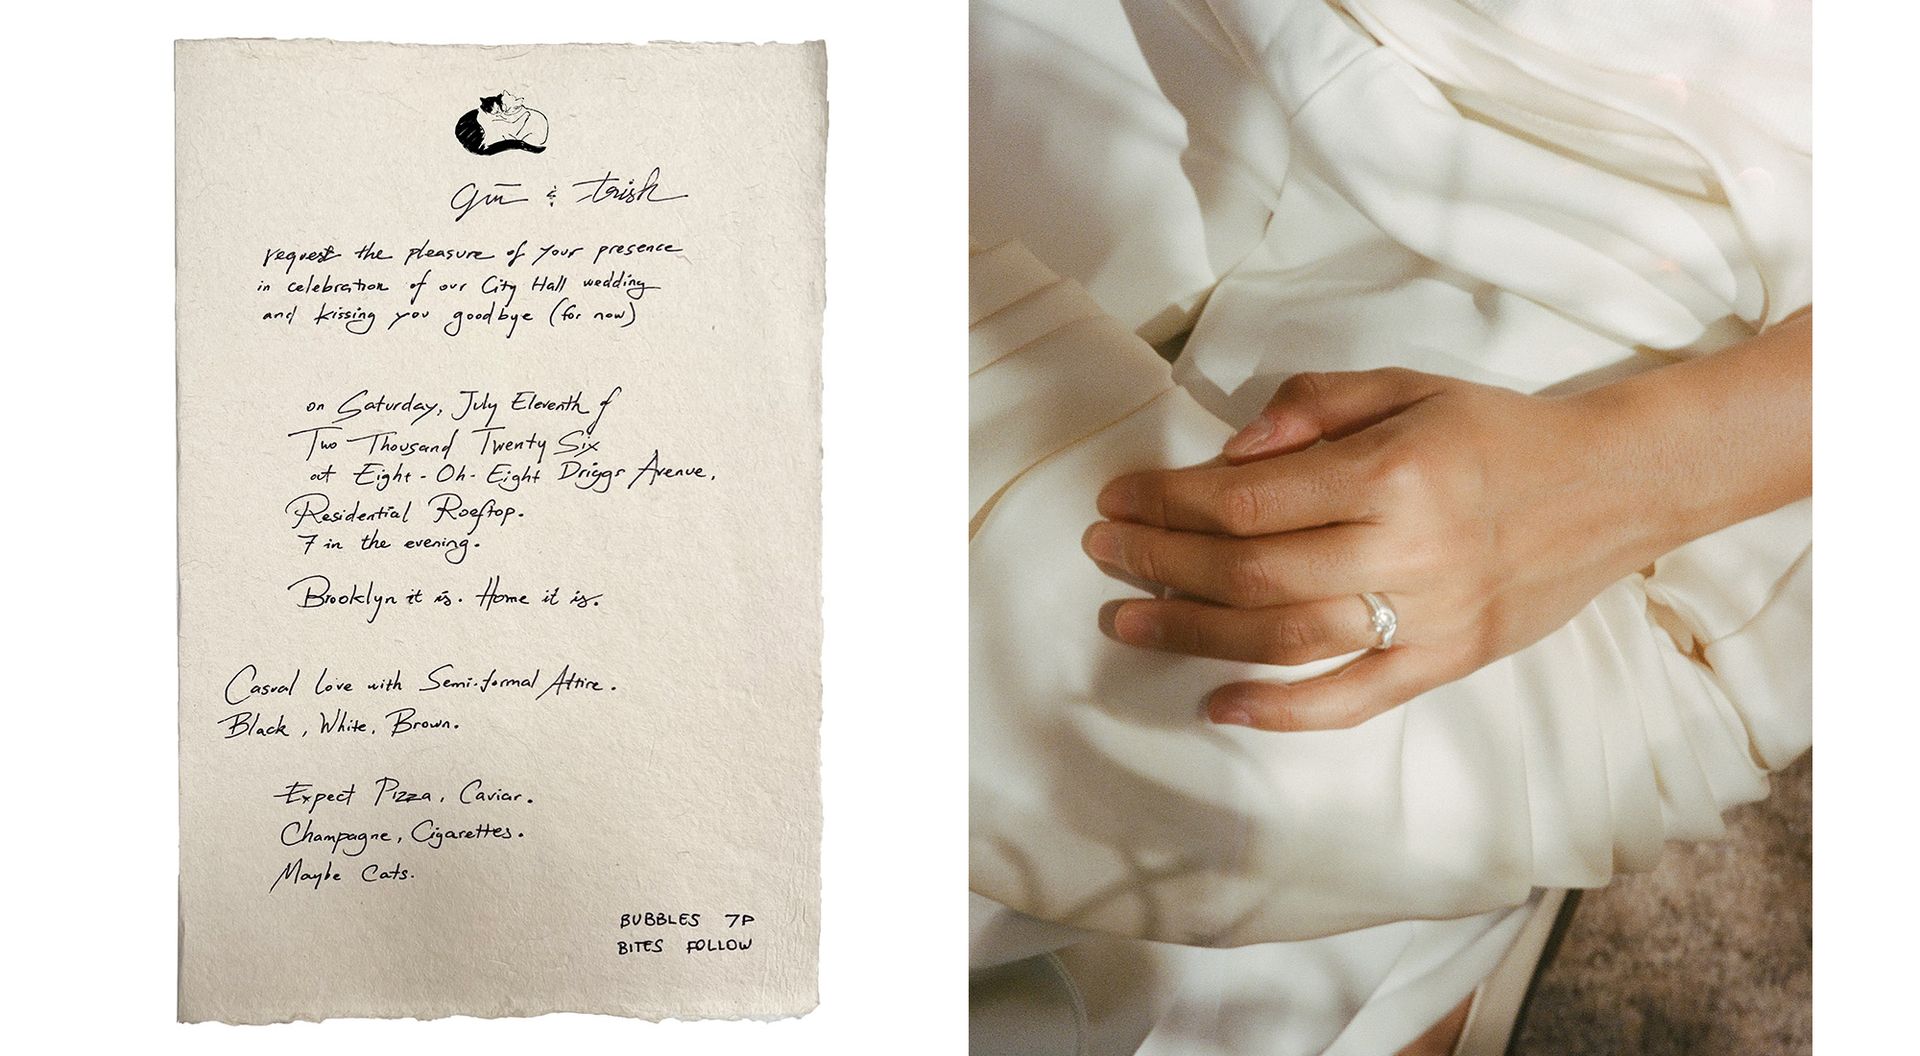 gūn & trish
request the pleasure of your presence
in celebration of our City Hall wedding
and kissing you goodbye (for now)
on Saturday, July Eleventh of
Two Thousand Twenty Six
at Eight-Oh-Eight Driggs Avenue,
Residential Rooftop.
7 in the evening.
Brooklyn it is. Home it is.
Casual Love with Semi-formal Attire.
Black, White, Brown.
Expect Pizza, Caviar.
Champagne, Cigarettes.
Maybe Cats.
BUBBLES 7P
BITES FOLLOW